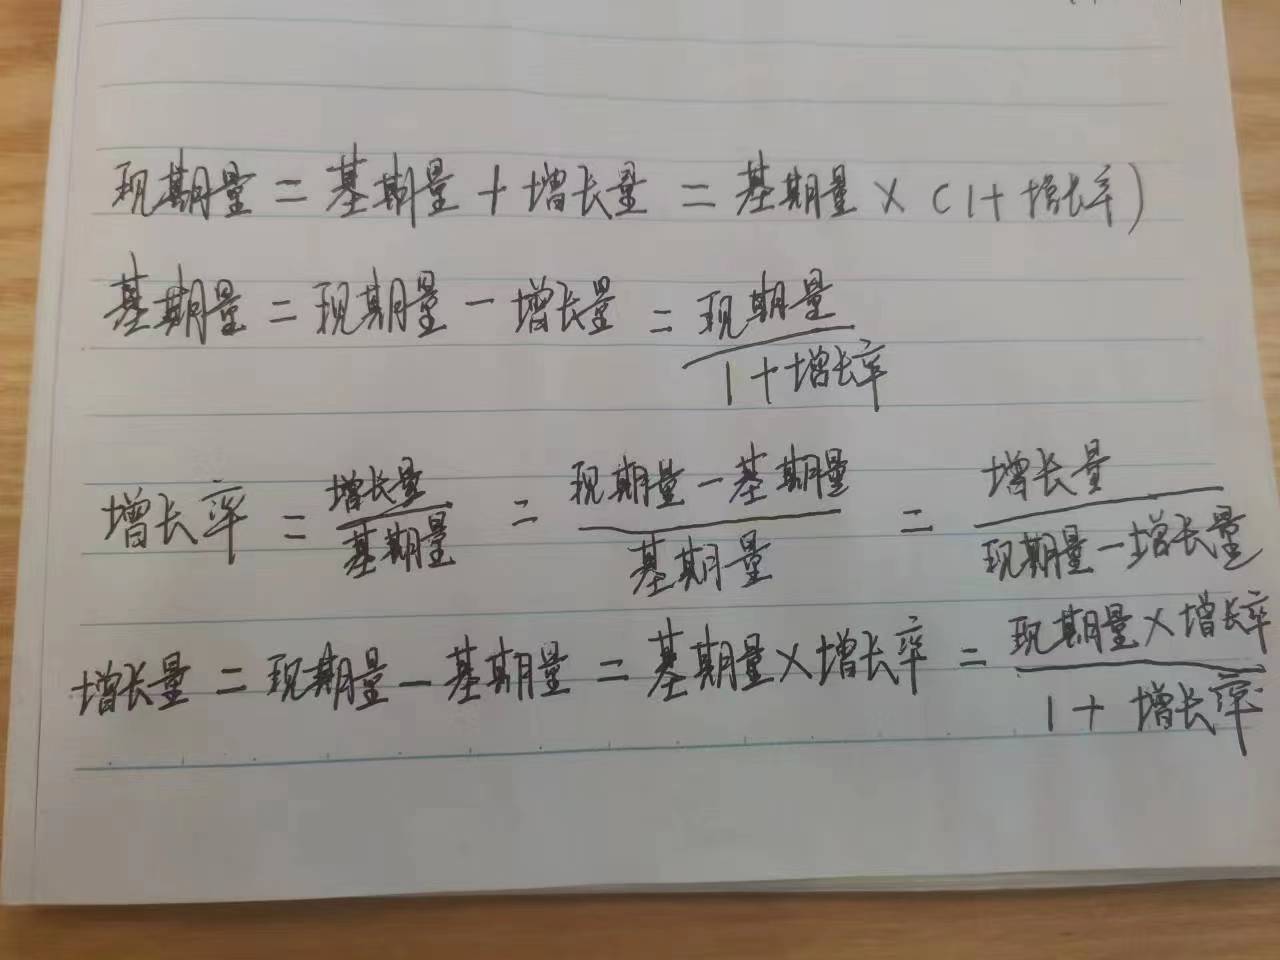 现期量 = 基期量 + 增长量 = 基期量 × (1 + 增长率)
基期量 = 现期量 - 增长量 = 现期量 / 1 + 增长率
增长率 = 增长量 / 基期量 = 现期量 - 基期量 / 基期量 = 增长量 / 现期量 - 增长量
增长量 = 现期量 - 基期量 = 基期量 × 增长率 = 现期量 × 增长率 / 1 + 增长率